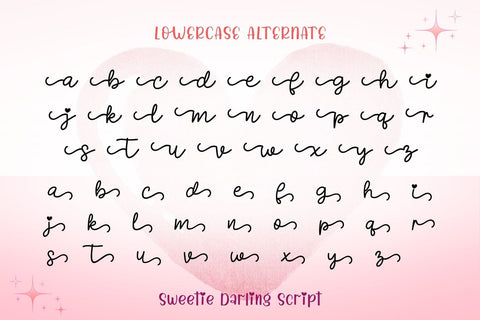 LOWERCASE ALTERNATE
a b c d e f g h i
j k l m n o p q r
s t u v w x y z
a b c d e f g h i
j k l m n o p q r
s t u v w x y z
Sweetie Darling Script